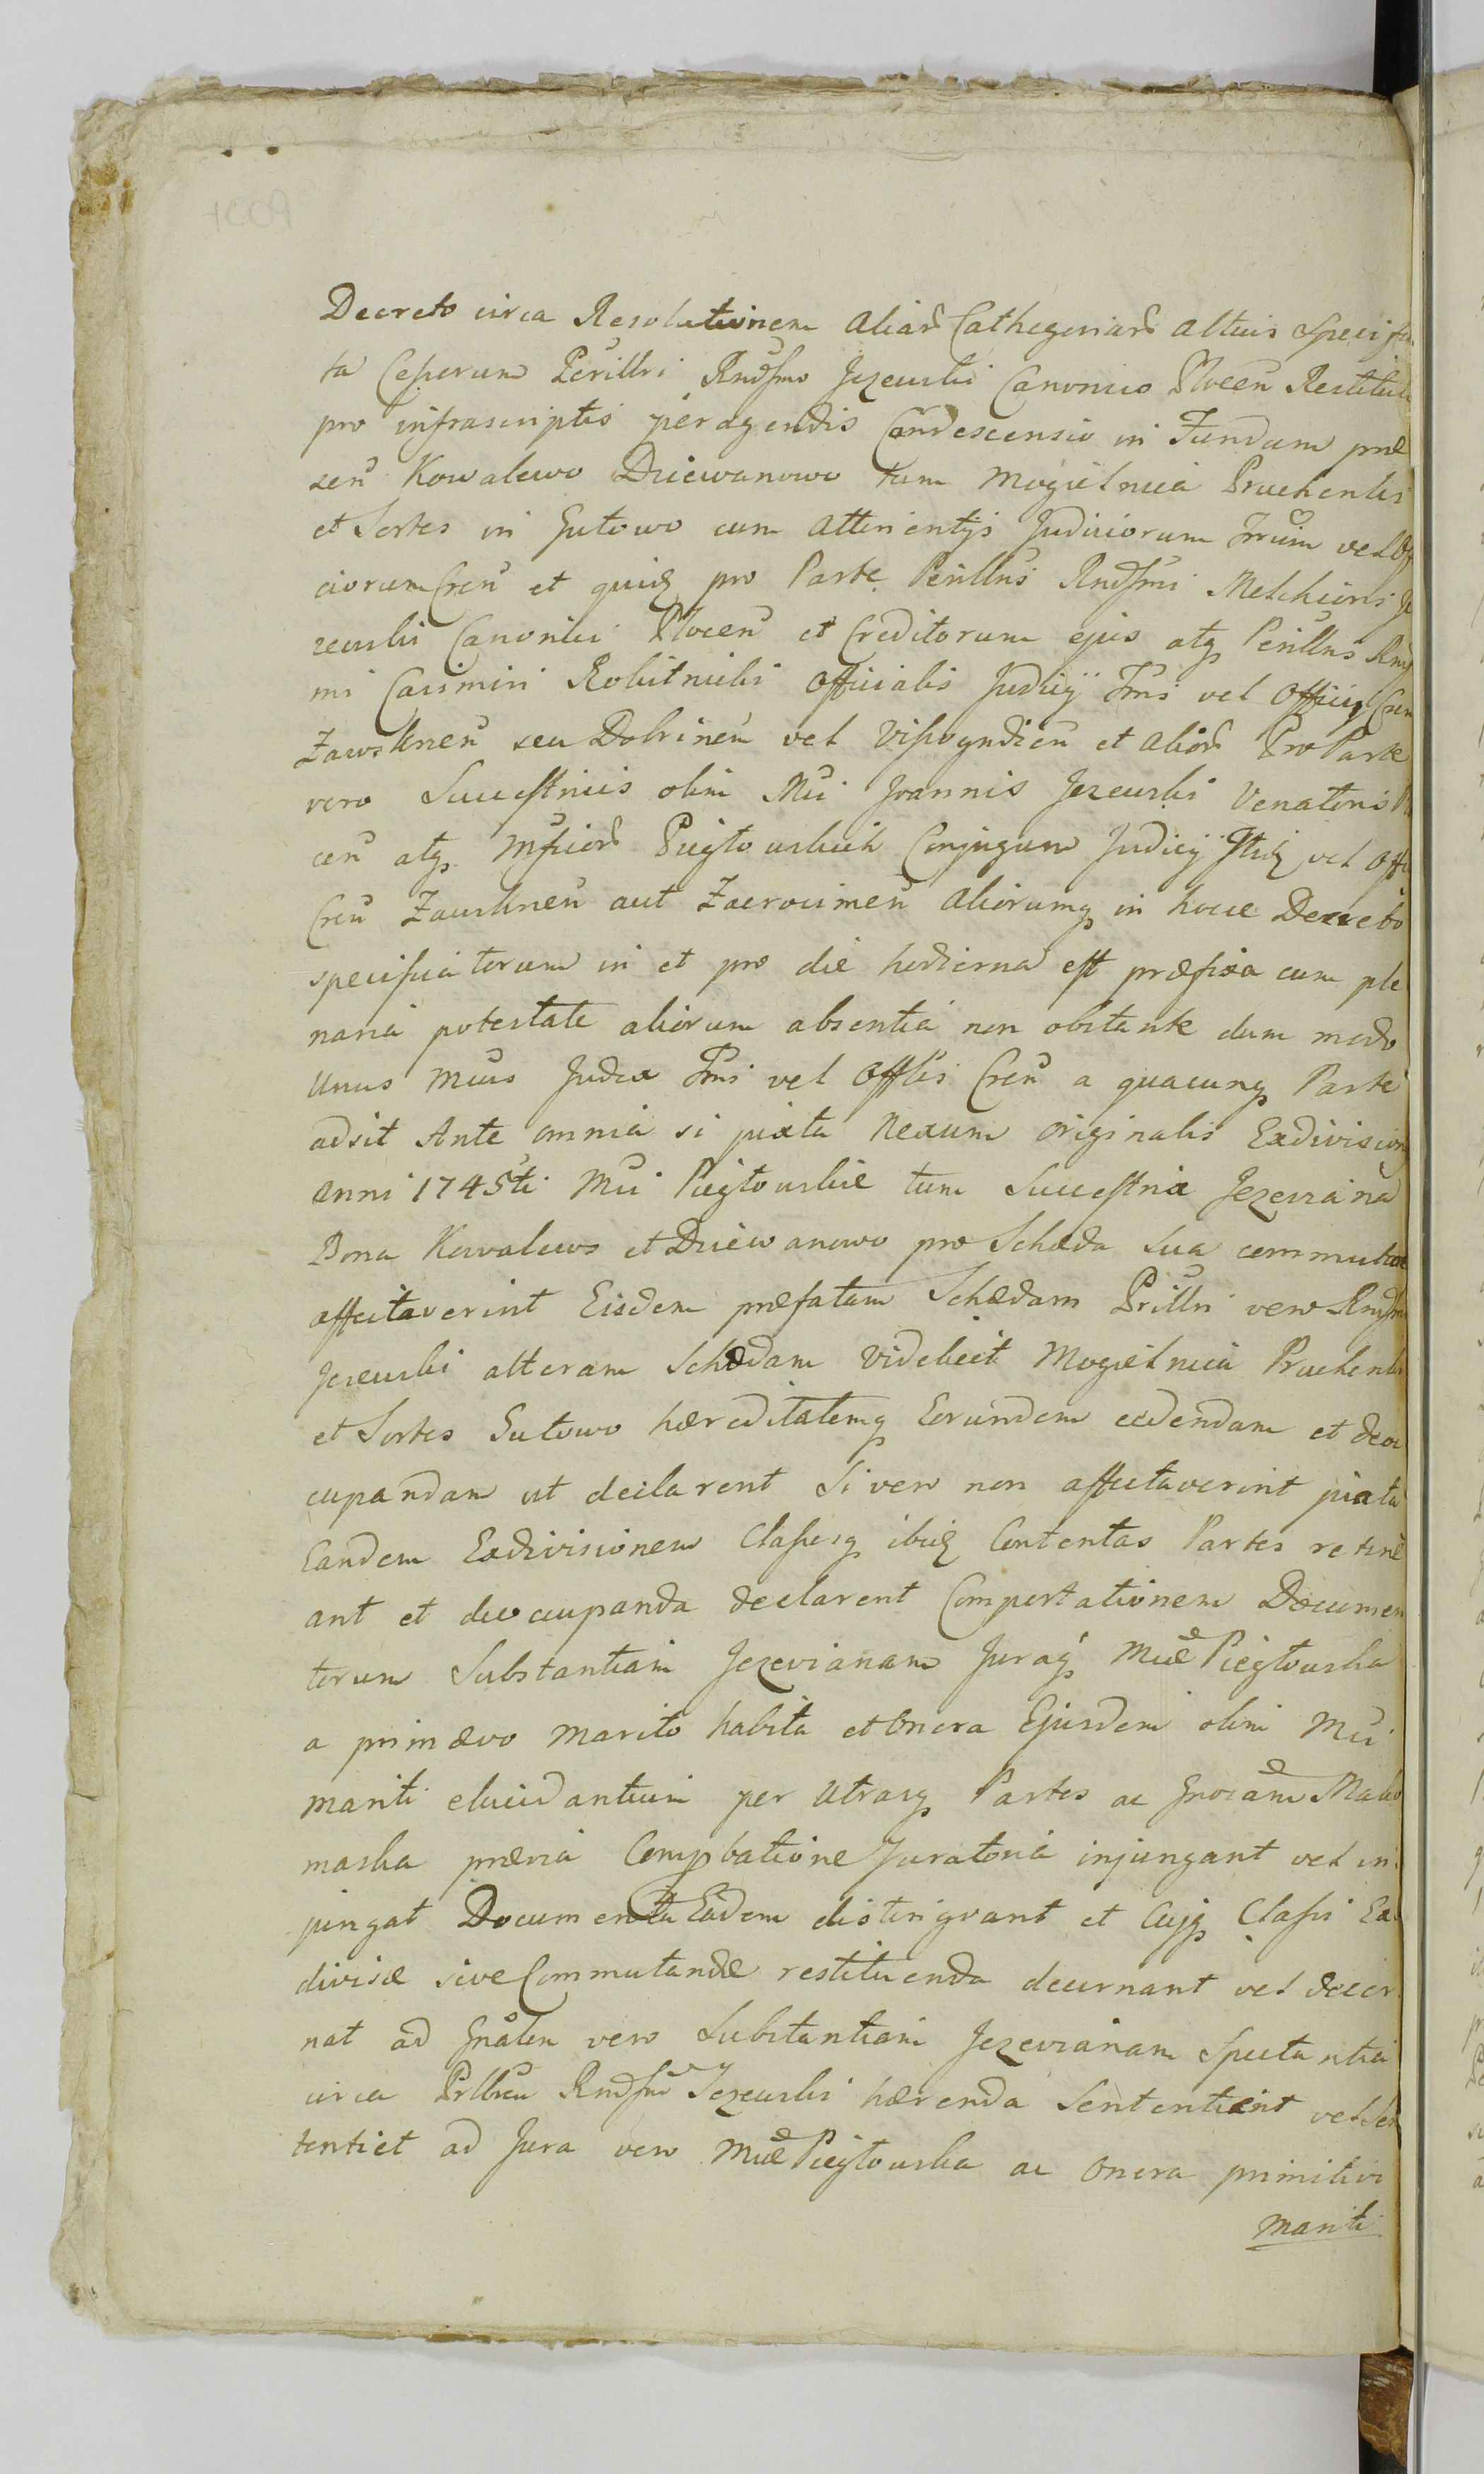 Decreto circa Resolutionem Aliar Cathegoriar altius Specifica
ta Ceserunt Perillri Rndsmo Jezewski Canonico Plocen Restitui
pro infrascriptis peragendis Condescensio in Fundum præ
sen Kowalewo Dziewanowo tum Mogielnica Pruchenki
et Sortes in Gutowo cum attinentijs Judiciorum Trrium vel Offi
ciorum Cren et quidz pro Parte Perillris Rndsmi Melchioris Je
zewski Canonici Plocen et Creditorum ejus atqz Perillris Rnds
mi Casimiri Robitnicki Officialis Judicij Trris vel Officij Cren
Zawsknen seu Dobrinen vel Vissogndien et alior Pro Parte
vero Successtricis olim Mci Joannis Jezewski Venatoris
cen atqz Mficor Piegłowskich Conjugum Judicij vel Offi
Cren Zawsknen aut Zacrocimen aliorumqz in hocce Decreto
specificatorum in et pro die hodierna est præfixa cum ple
naria potestate aliorum absentia non obstante dum modo
Unus Mcus Judex Trris vel Offlis Cren a quacunqz Parte
adsit Ante omnia si juxta nexum originalis Exdivisionis
Anni 1745ti Mci Piegłowskie tum Successtrix Jezewiana
Bona Kowalewo et Dziewanowo pro Scheda sua commutare
affectaverint Eisdem præfatam Schedam Prillri vero Rndsmi
Jezewski alteram Schedam videlicet Mogielnica Pruchenki
et Sortes Gutowo hæreditatemqz Eorundem cedendam et deoc
cupandam ut declarent Si vero non affectaverint juxta
Eandem Exdivisionem Classesqz ibidz Contentas Partes retine
ant et deoccupanda declarent Comportationem Documen
torum Substantiam Jezevianam Juraqz Mcæ Piegłowska
a primævo Marito habita et Onera Ejusdem olim Mci
mariti elucidantium per Utrasqz Partes ac Gnosam Mako
maska prævia Comprobatione Juratoria injungant vel in
jungat Documenta Eadem distingvant et Cujqz Classi Ex
divisæ sive Commutandæ restituenda decernant vel decer
nat ad Gnalem vero Substantiam Jezevianam Spectantia
circa Prllrem Rndsm Jezewski hærenda Sententient vel Sen
tentiet ad Jura vero Mcæ Piegłowska ac Onera primitivi
Mariti